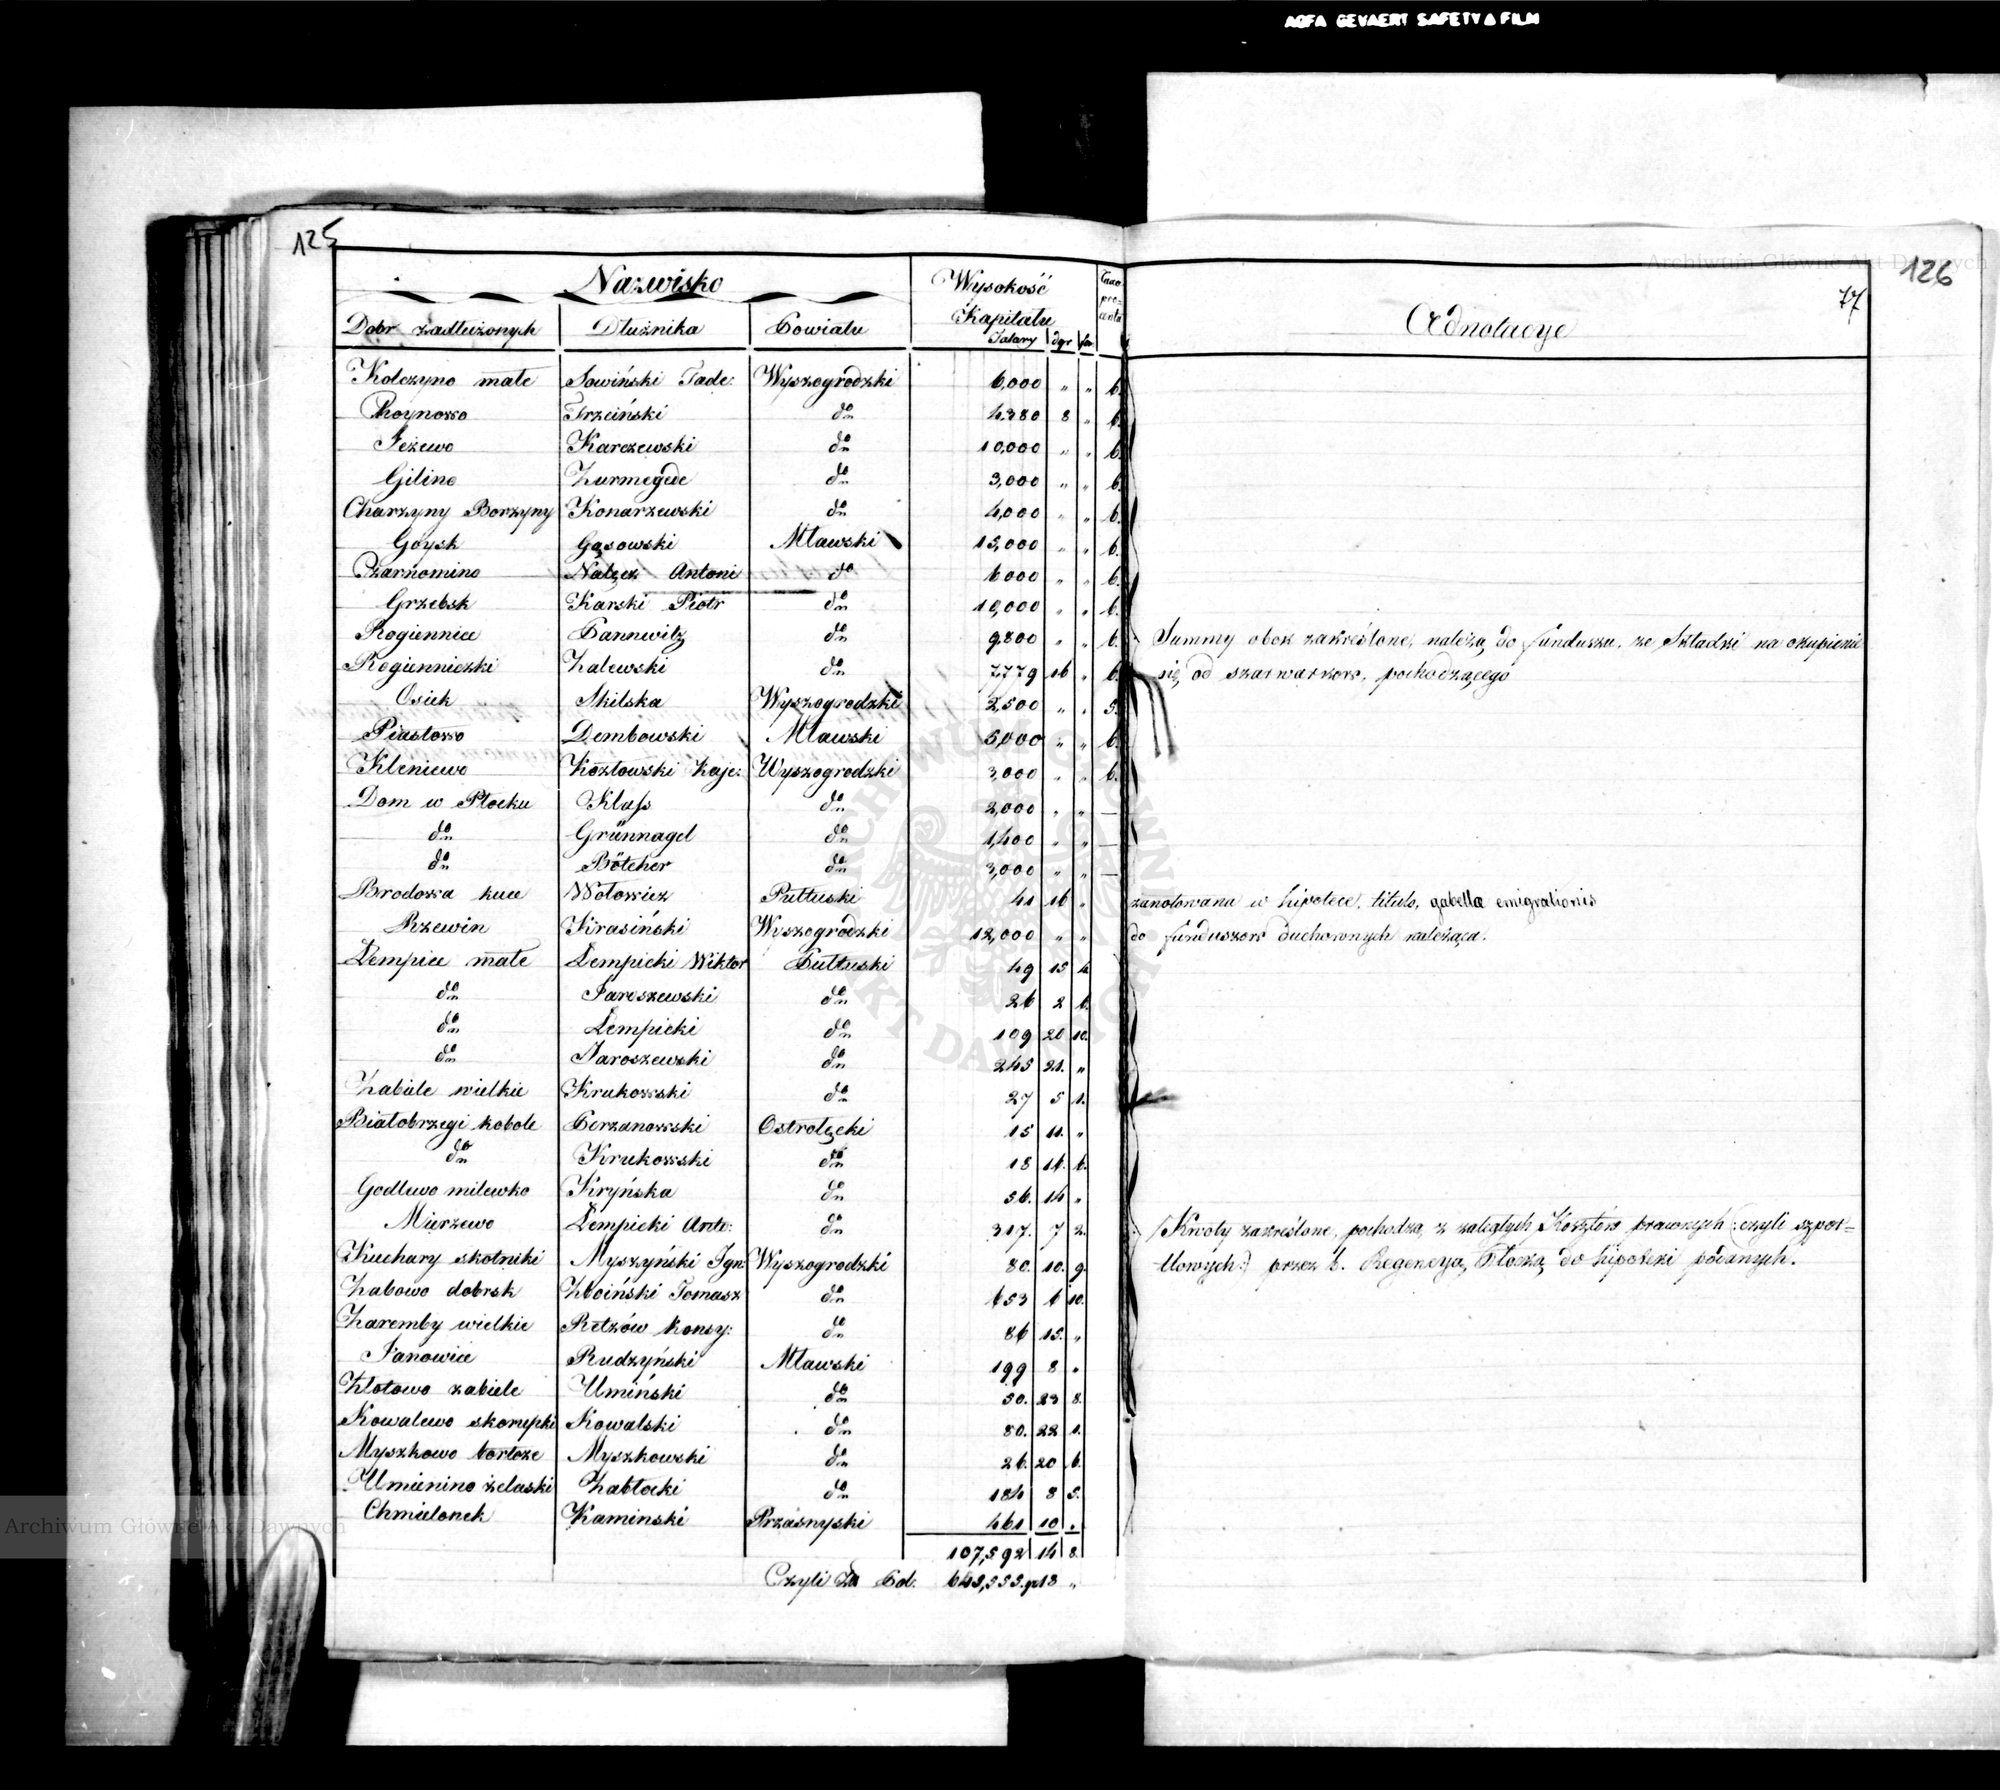 AGFA GEVAERT SAFETY FILM
125
126
77
Archiwum Główne Akt Dawnych
Nazwisko Wysokość Kapitału
Dobr zadłużonych Dłużnika Powiatu Talary dgr fen procenta
Adnotacye
Kolczyno małe Sowiński Tade: Wyszogrodzki 6,000 " " 6.
Trzciński do 4380 8 " 6.
Jeżewo Karczewski do 10,000 " " 6.
Gilino Zurmegede do 3,000 " " 6.
Charzyny Borzyny Konarzewski do 4,000 " " 6.
Goysk Gąsowski Mławski 15,000 " " 6.
Czarnomino Nałęcz Antoni do 6000 " " 6.
Grzebsk Karski Piotr do 10,000 " " 6.
Rogiennice Pannwitz do 9800 " " 6.
Rogienniczki Zalewski do 7779 16 " 6.
Osiek Skilska Wyszogrodzki 2,500 " " 5.
Piastowo Dembowski Mławski 5,000 " " 6.
Kleniewo Kozłowski Kaje: Wyszogrodzki 3,000 " " 6.
Dom w Płocku Klafs do 2,000 " " —
do Grünnagel do 1,400 " " —
do Bötcher do 3,000 " " —
Brodowa kuce Wołowicz Pułtuski 41 16 "
Rzewin Krasiński Wyszogrodzki 12,000 " "
Łempice małe Łempicki Wiktor Pułtuski 49 15 4.
do Jaroszewski do 26 2 6.
do Łempicki do 109 20 10.
do Jaroszewski do 245 21. "
Zabiele wielkie Krukowski do 27 5 1.
Białobrzegi kobole Gerzanowski Ostrołęcki 15 11. "
do Krukowski do 18 16. 6.
Godlewo milewko Kryńska do 56. 14 "
Mierzewo Łempicki Anto: do 317. 7 2.
Kuchary skotniki Myszyński Ign: Wyszogrodzki 80. 10. 9.
Żabowo dobrsk Zboiński Tomasz do 653 6 10.
Zaremby wielkie Retzów konsy: do 86 15. "
Janowice Rudzyński Mławski 199 8 "
Złotowo zabiele Umiński do 50. 23 8.
Kowalewo skorupki Kowalski do 80. 22 1.
Myszkowo Myszkowski do 26. 20 6.
Umienino żelaski Zabłocki do 184 8 5.
Chmielonek Kaminski Przasnyski 461 10 "
107,592 14 8.
Czyli Pol: 645,555. gr 18 "
Summy obok zakreślone, należą do funduszu, ze Składki na okupienie
się od szarwarków, pochodzącego
zanotowana w hipotece, titulo, gabella emigrationis
do funduszów duchownych należąca.
Kwoty zakreślone, pochodzą z zaległych Kosztów prawnych (czyli szpor=
tlowych:) przez b. Regencyą Płocką do hipoteki podanych.
Archiwum Główne Akt Dawnych